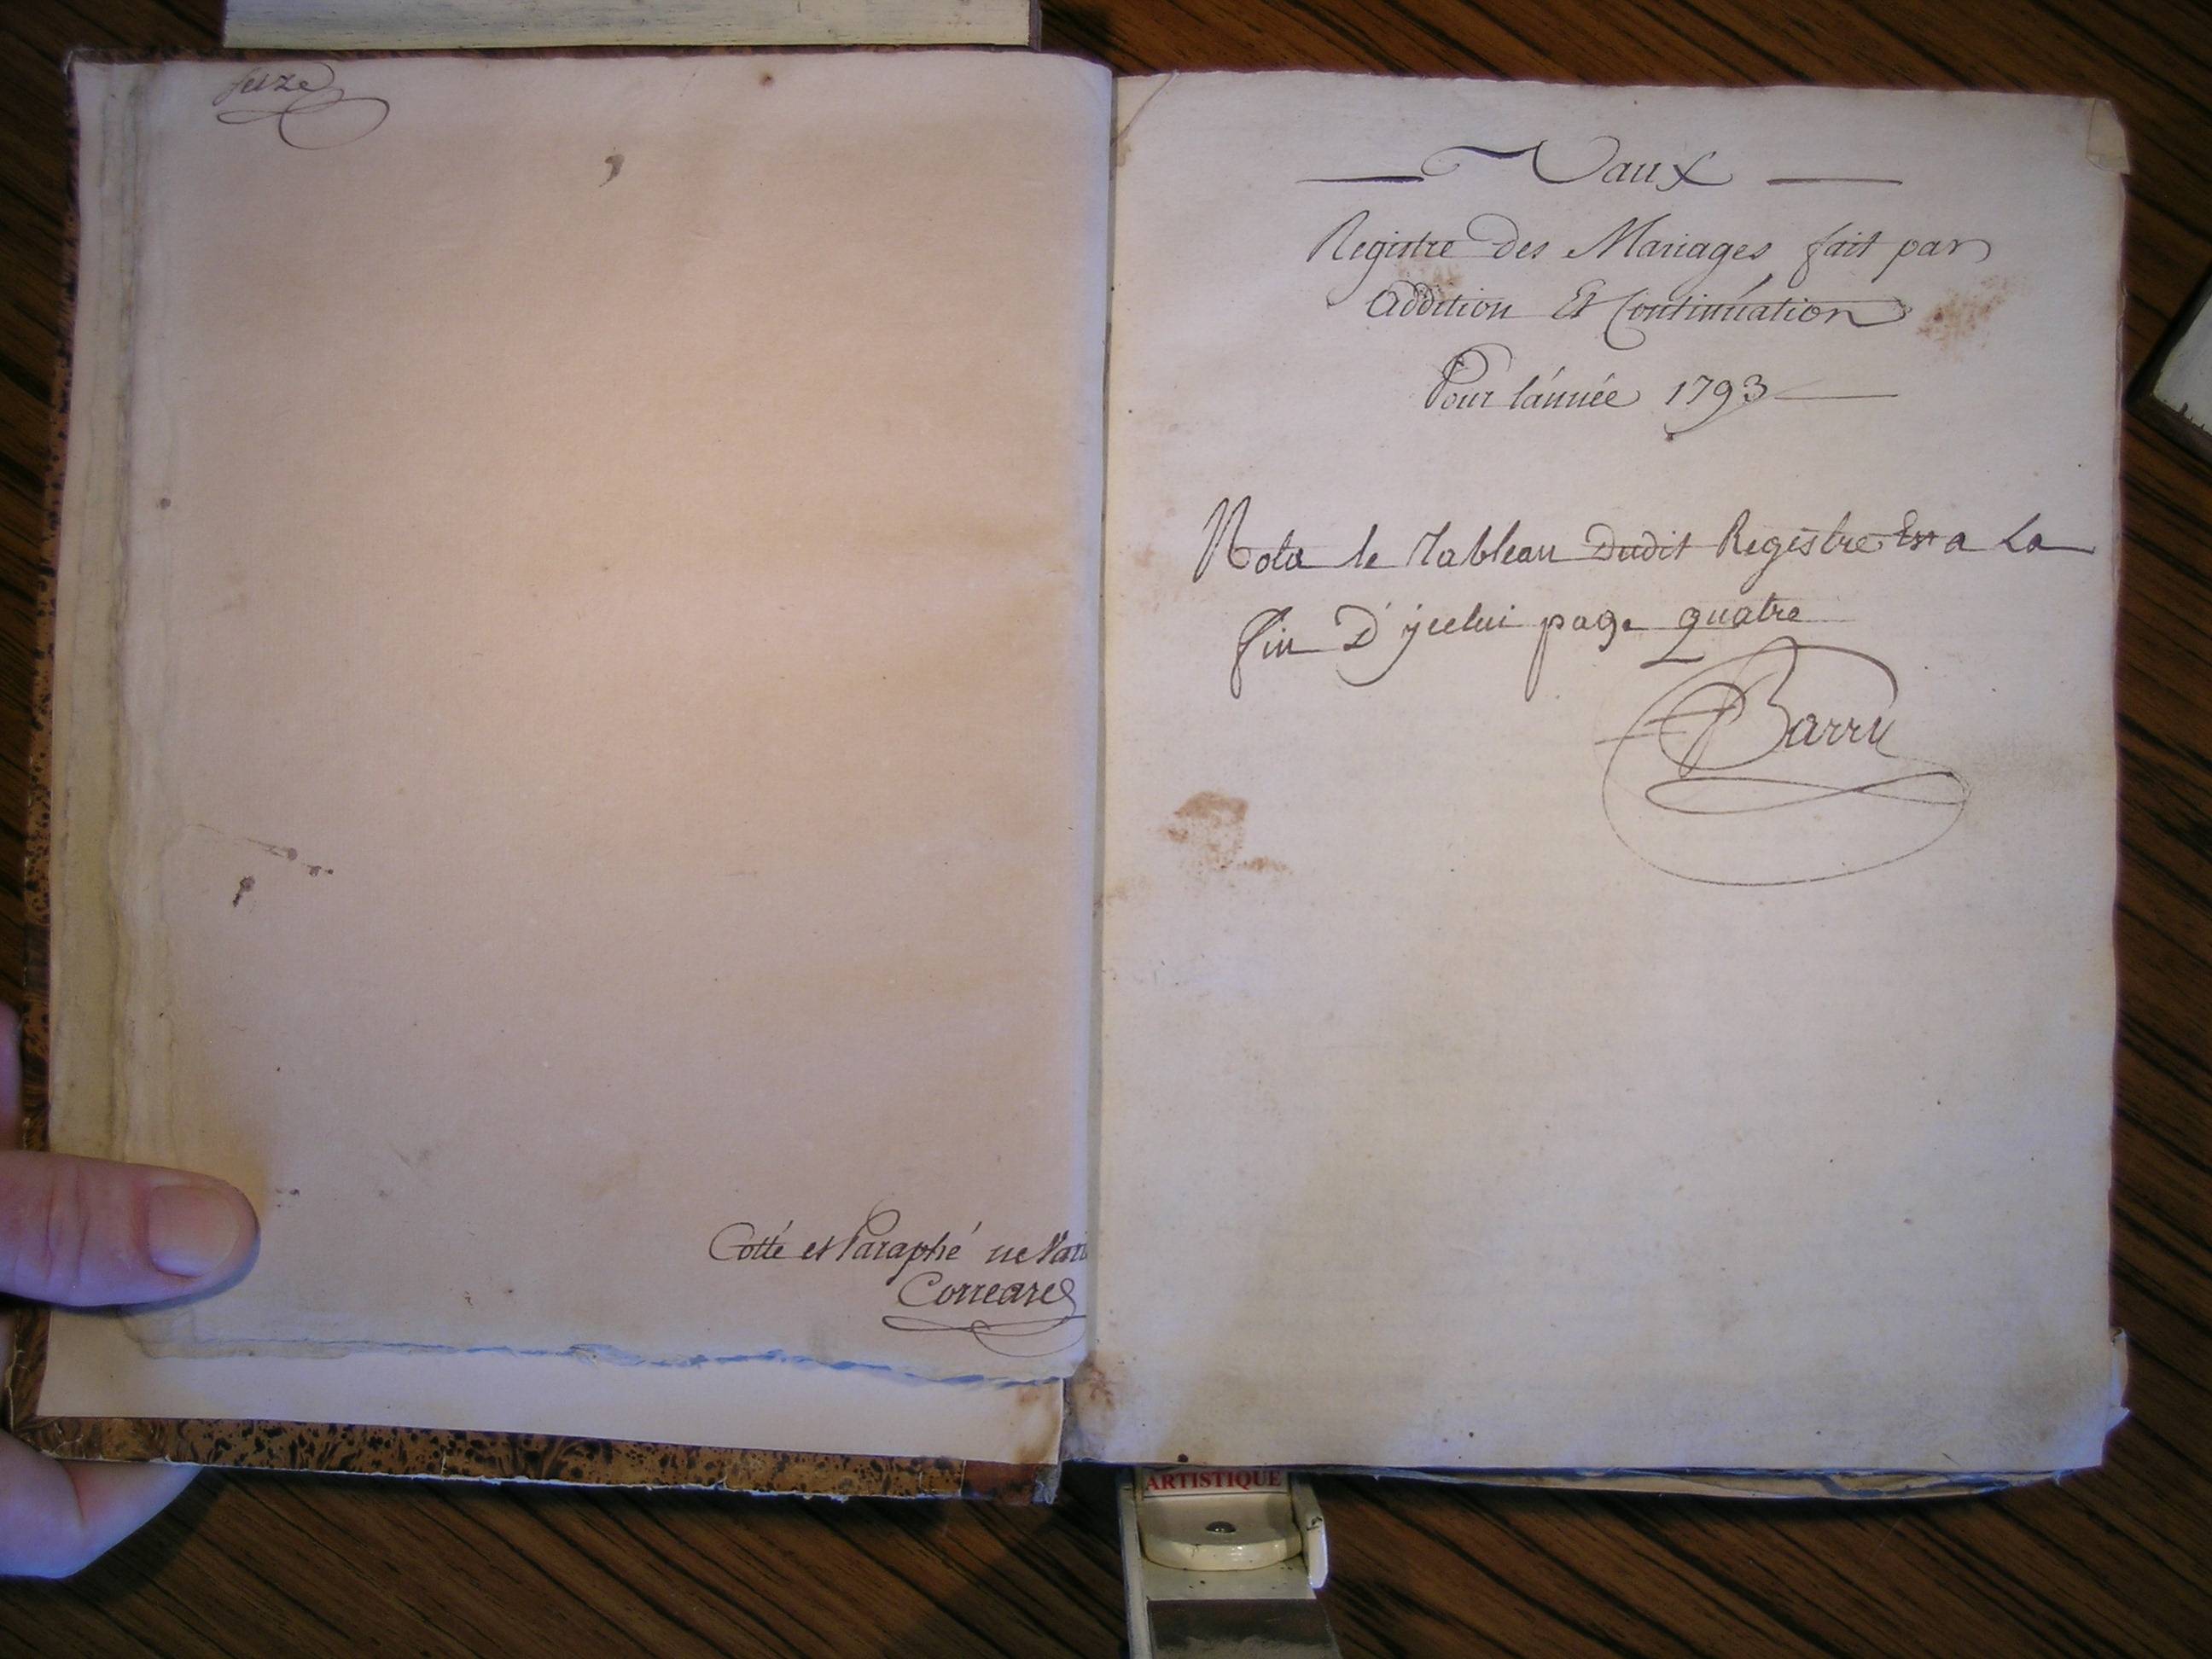 seize
Cotté et Paraphé ne Vari
Correard
Vaux
Registre des Mariages fait par
addition Et Continuation
Pour l'année 1793
Nota le Tableau Dudit Registre Est a La
fin D'ycelui page quatre
Barry
ARTISTIQUE